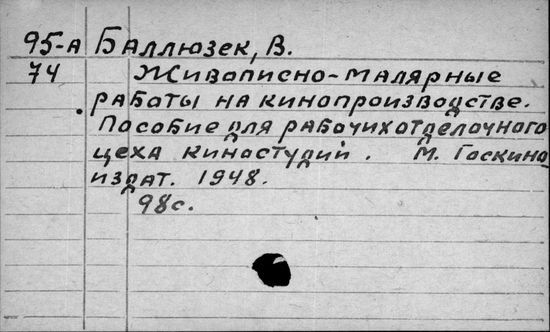 95-А Баллюзек, В.
74 Живописно-малярные
работы на кинопроизводстве.
Пособие для рабочих отделочного
цеха киностудий. М. Госкино
издат. 1948.
98с.